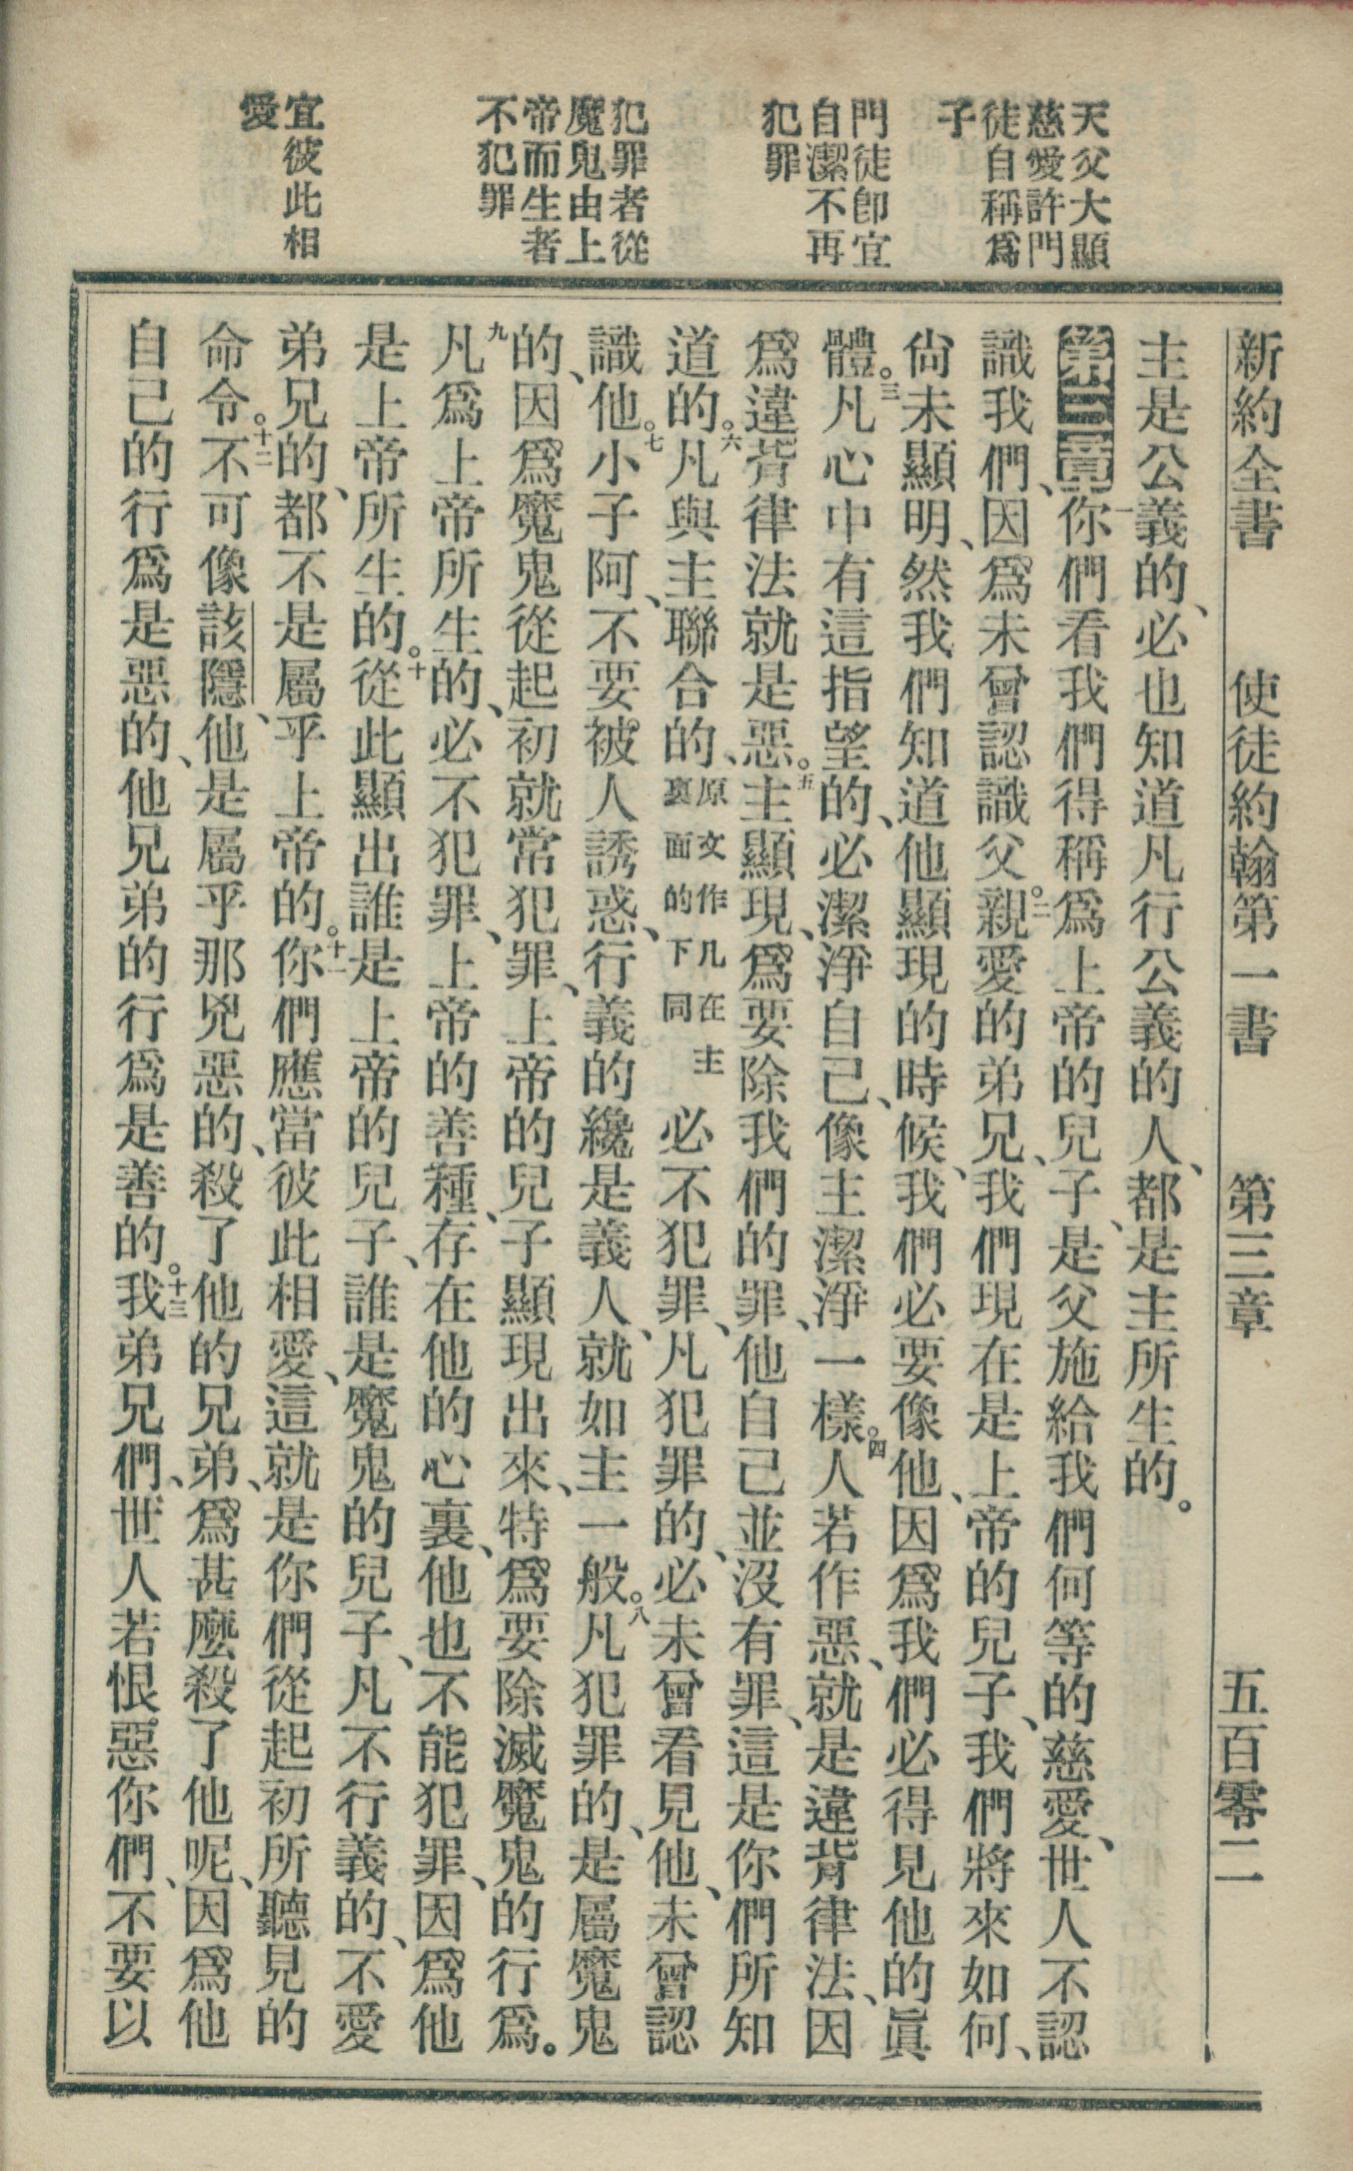 新約全書　使徒約翰第一書　第三章　五百零二
天父大顯
慈愛許門
徒自稱爲
子
門徒卽宜
自潔不再
犯罪
犯罪者從
魔鬼由上
帝而生者
不犯罪
宜彼此相
愛
主是公義的、必也知道凡行公義的人、都是主所生的。
第三章一你們看我們得稱爲上帝的兒子、是父施給我們何等的慈愛、世人不認
識我們、因爲未曾認識父。二親愛的弟兄、我們現在是上帝的兒子、我們將來如何、
尙未顯明、然我們知道他顯現的時候、我們必要像他、因爲我們必得見他的眞
體。三凡心中有這指望的、必潔淨自己、像主潔淨一樣。四人若作惡、就是違背律法、因
爲違背律法就是惡。五主顯現、爲要除我們的罪、他自己並沒有罪、這是你們所知
道的。六凡與主聯合的、原文作凡在主裏面的下同必不犯罪、凡犯罪的、必未曾看見他、未曾認
識他。七小子阿、不要被人誘惑、行義的纔是義人、就如主一般。八凡犯罪的、是屬魔鬼
的、因爲魔鬼從起初就常犯罪、上帝的兒子顯現出來、特爲要除滅魔鬼的行爲。
九凡爲上帝所生的、必不犯罪、上帝的善種、存在他的心裏、他也不能犯罪、因爲他
是上帝所生的。十從此顯出誰是上帝的兒子、誰是魔鬼的兒子、凡不行義的、不愛
弟兄的、都不是屬乎上帝的。十一你們應當彼此相愛、這就是你們從起初所聽見的
命令。十二不可像該隱、他是屬乎那兇惡的、殺了他的兄弟、爲甚麼殺了他呢、因爲他
自己的行爲是惡的、他兄弟的行爲是善的。十三我弟兄們、世人若恨惡你們、不要以